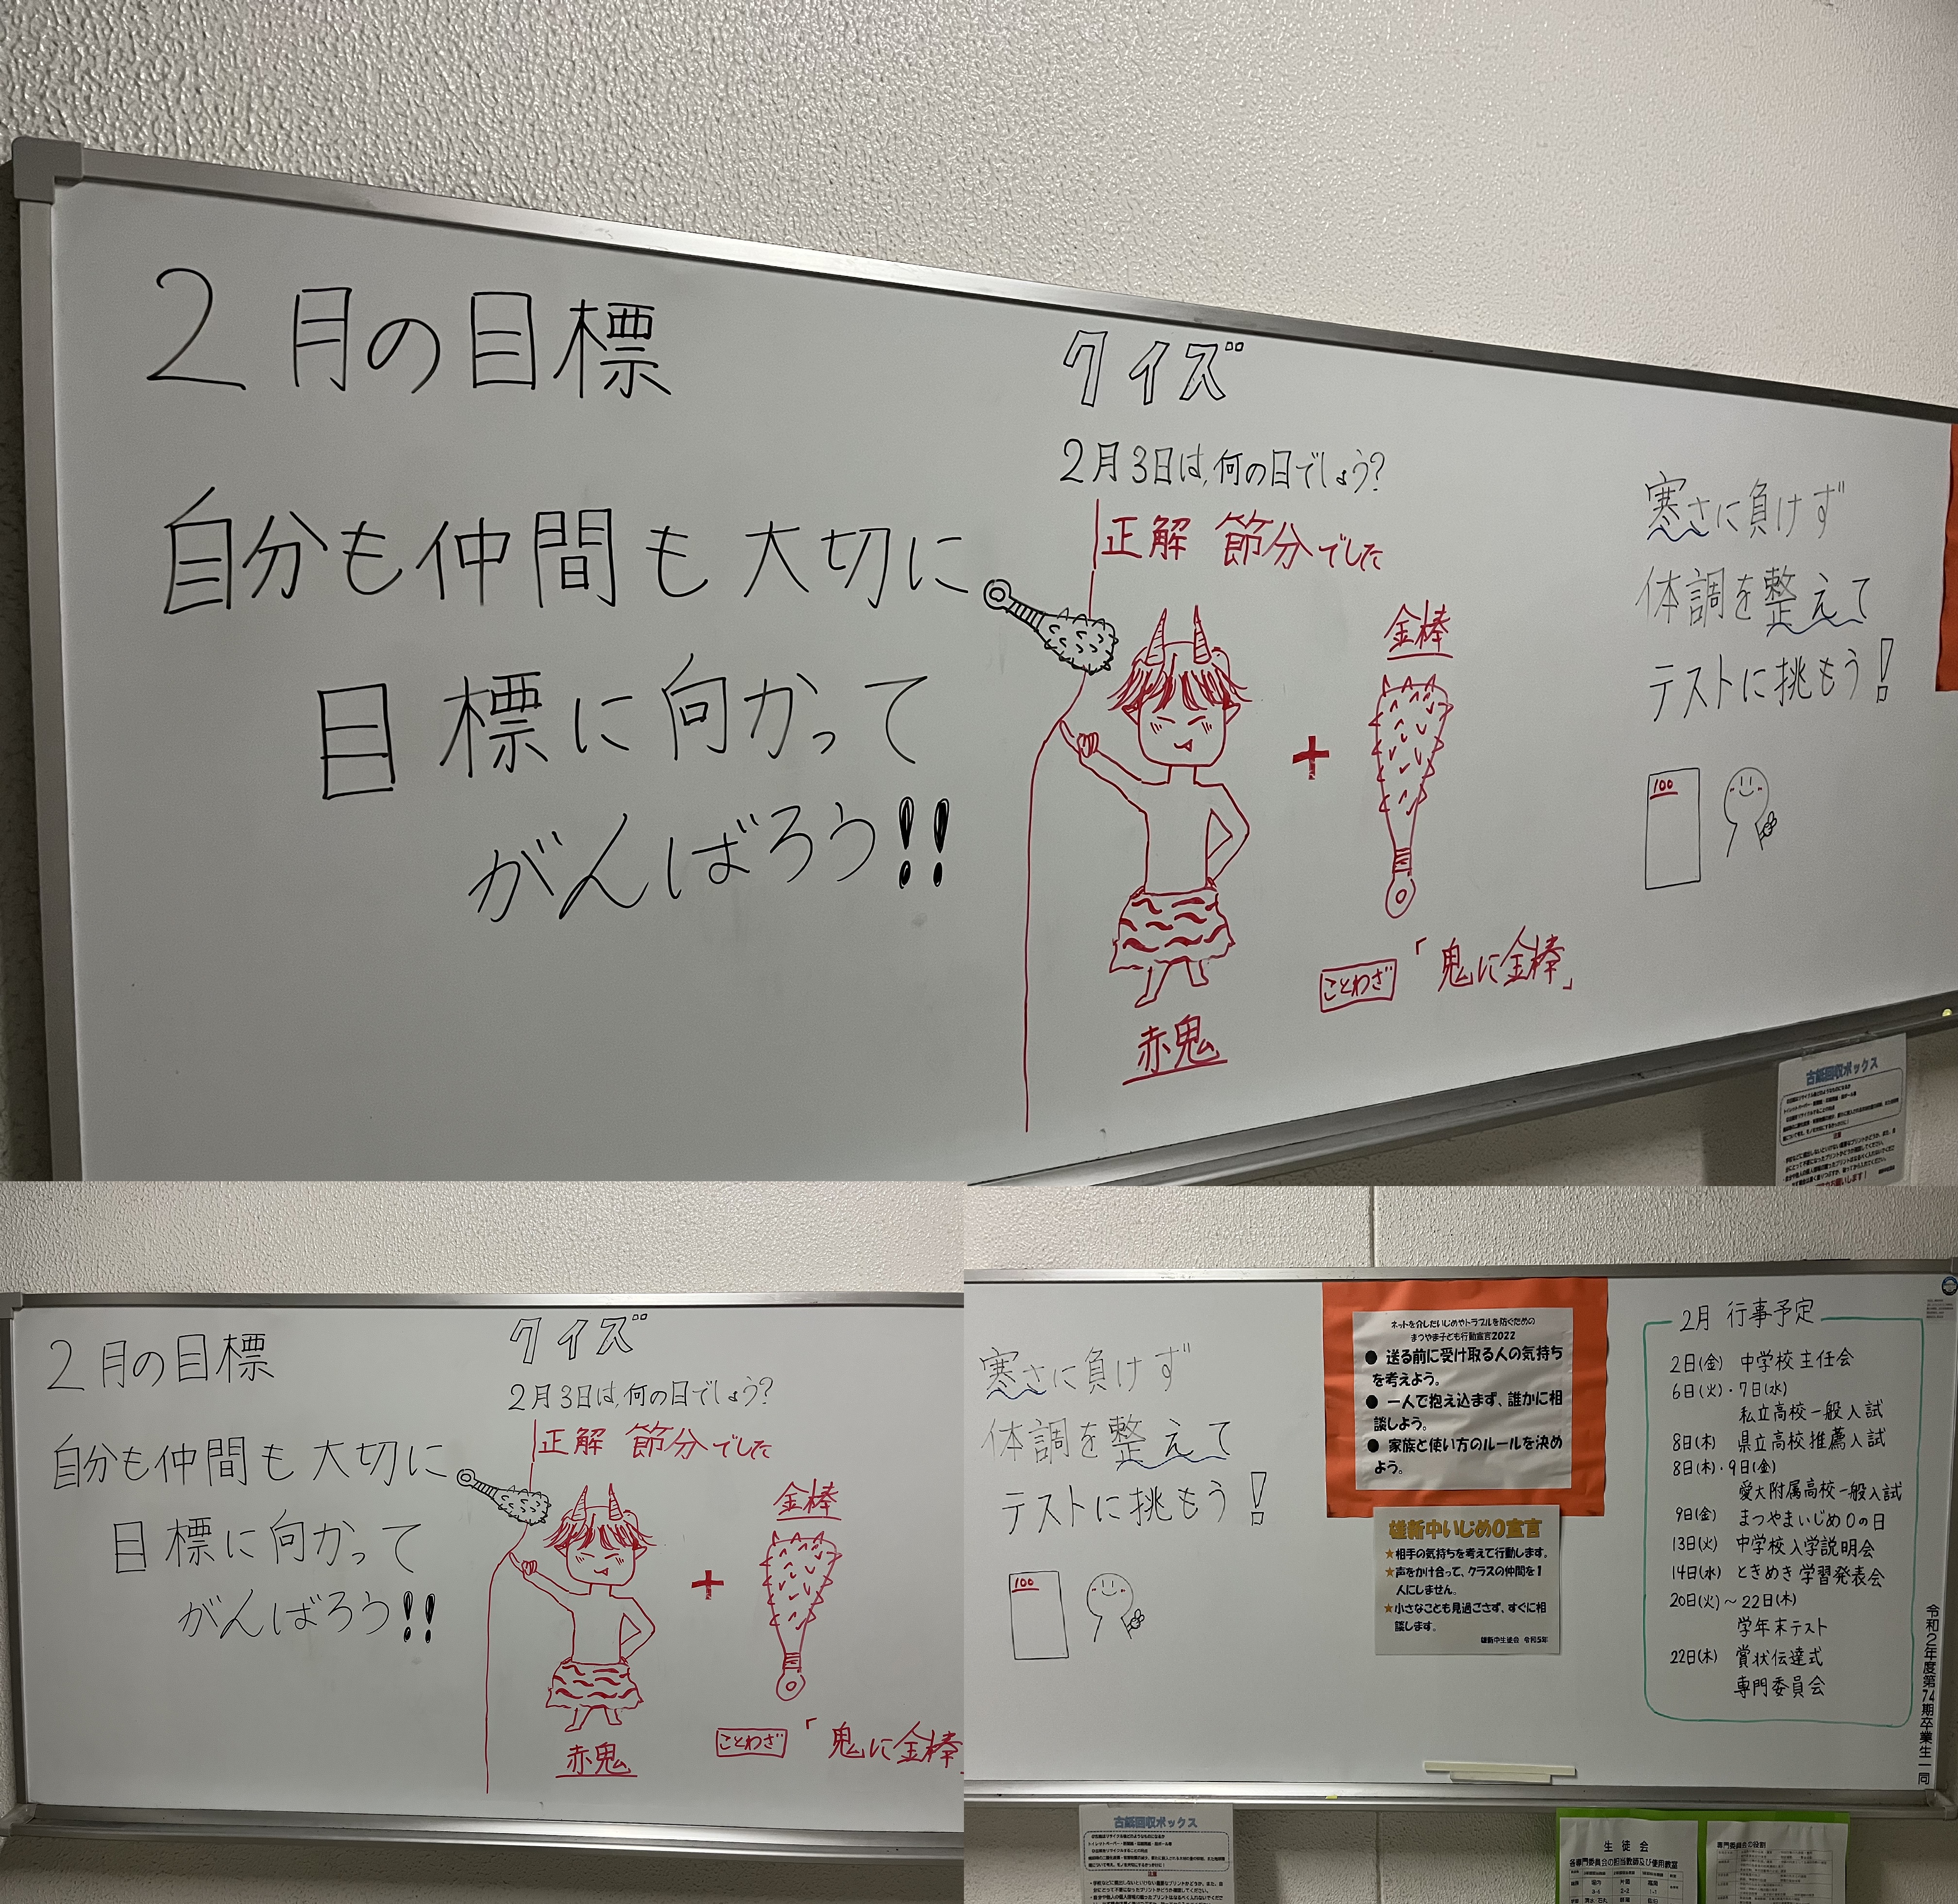 2月の目標
自分も仲間も大切に
目標に向かって
がんばろう!!
クイズ
2月3日は、何の日でしょう?
正解 節分でした
金棒
+
ことわざ 「鬼に金棒」
赤鬼
寒さに負けず
体調を整えて
テストに挑もう!
100
古紙回収ボックス
2月の目標
自分も仲間も大切に
目標に向かって
がんばろう!!
クイズ
2月3日は、何の日でしょう?
正解 節分でした
金棒
+
ことわざ 「鬼に金棒」
赤鬼
寒さに負けず
体調を整えて
テストに挑もう!
100
ネットを介したいじめやトラブルを防ぐための
まつやま子ども行動宣言2022
● 送る前に受け取る人の気持ち
を考えよう。
● 一人で抱え込まず、誰かに相
談しよう。
● 家族と使い方のルールを決め
よう。
雄新中いじめ0宣言
★相手の気持ちを考えて行動します。
★声をかけ合って、クラスの仲間を1
人にしません。
★小さなことも見過ごさず、すぐに相
談します。
雄新中生徒会 令和5年
2月 行事予定
2日(金) 中学校主任会
6日(火)・7日(水)
私立高校一般入試
8日(木) 県立高校推薦入試
8日(木)・9日(金)
愛大附属高校一般入試
9日(金) まつやまいじめ0の日
13日(火) 中学校入学説明会
14日(水) ときめき学習発表会
20日(火)〜22日(木)
学年末テスト
22日(木) 賞状伝達式
専門委員会
令和2年度第74期卒業生一同
古紙回収ボックス
生徒会
各専門委員会の担当教師及び使用教室
専門委員会の役割